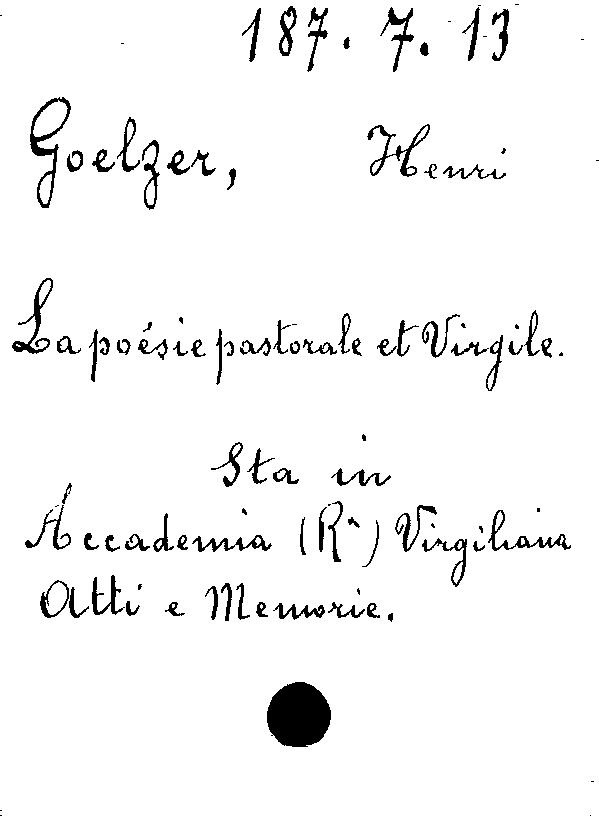 187. 7. 13
Goelzer, Henri
La poésie pastorale et Virgile.
Sta in
Accademia (Rª) Virgiliana
Atti e Memorie.